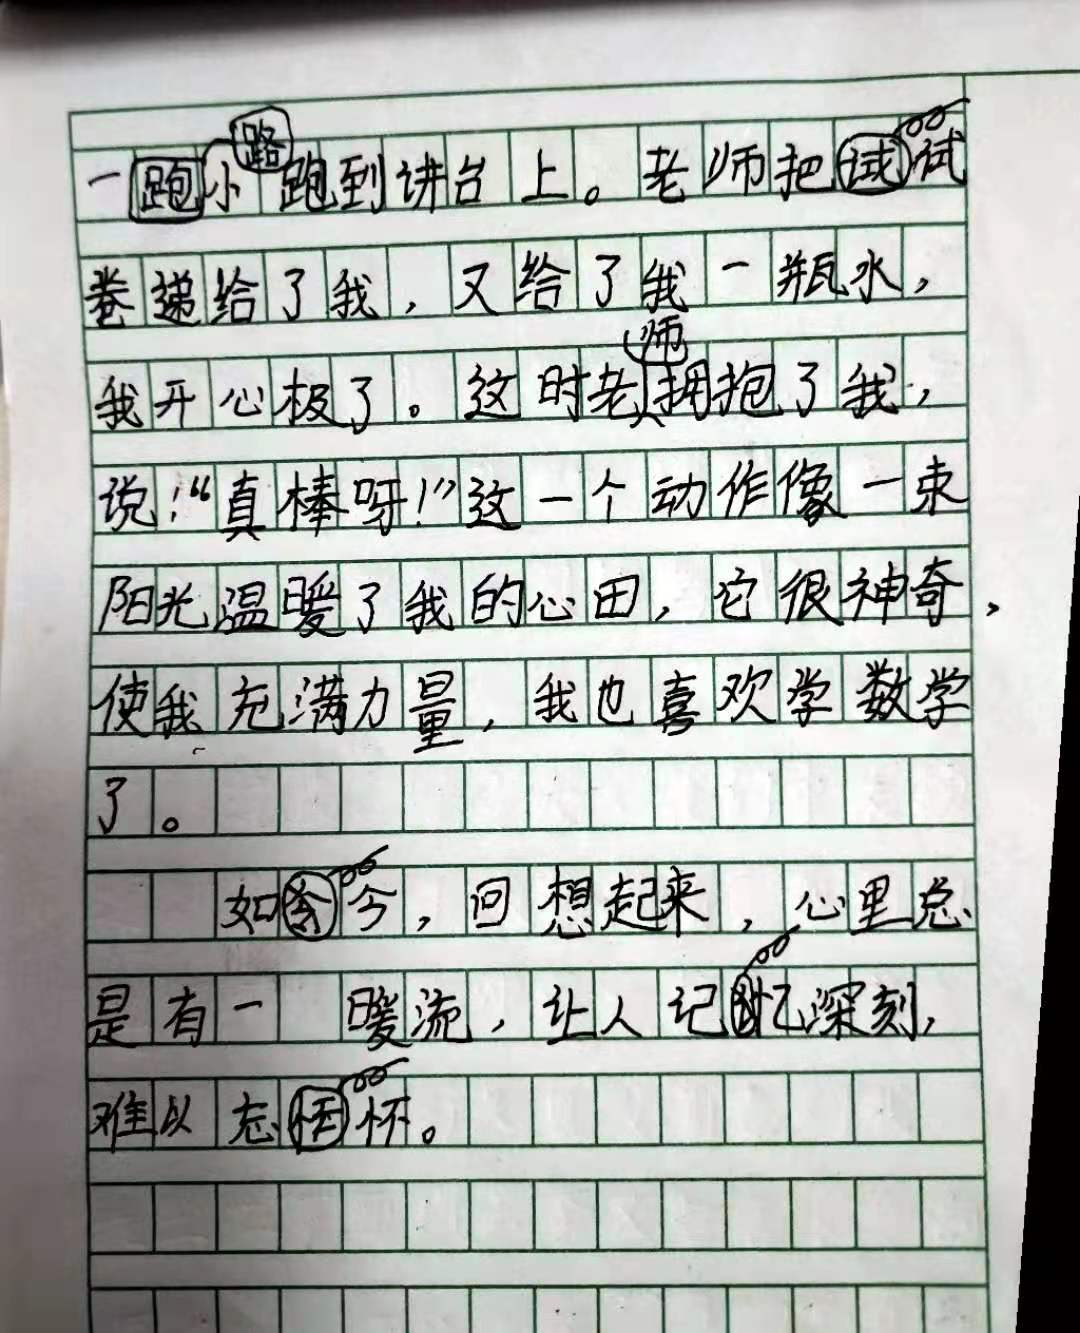 一路小跑跑到讲台上。老师把试
卷递给了我，又给了我一瓶水，
我开心极了。这时老师拥抱了我，
说！“真棒呀！”这一个动作像一束
阳光温暖了我的心田，它很神奇，
使我充满力量，我也喜欢学数学
了。
如今，回想起来，心里总
是有一 暖流，让人记忆深刻，
难以忘怀。